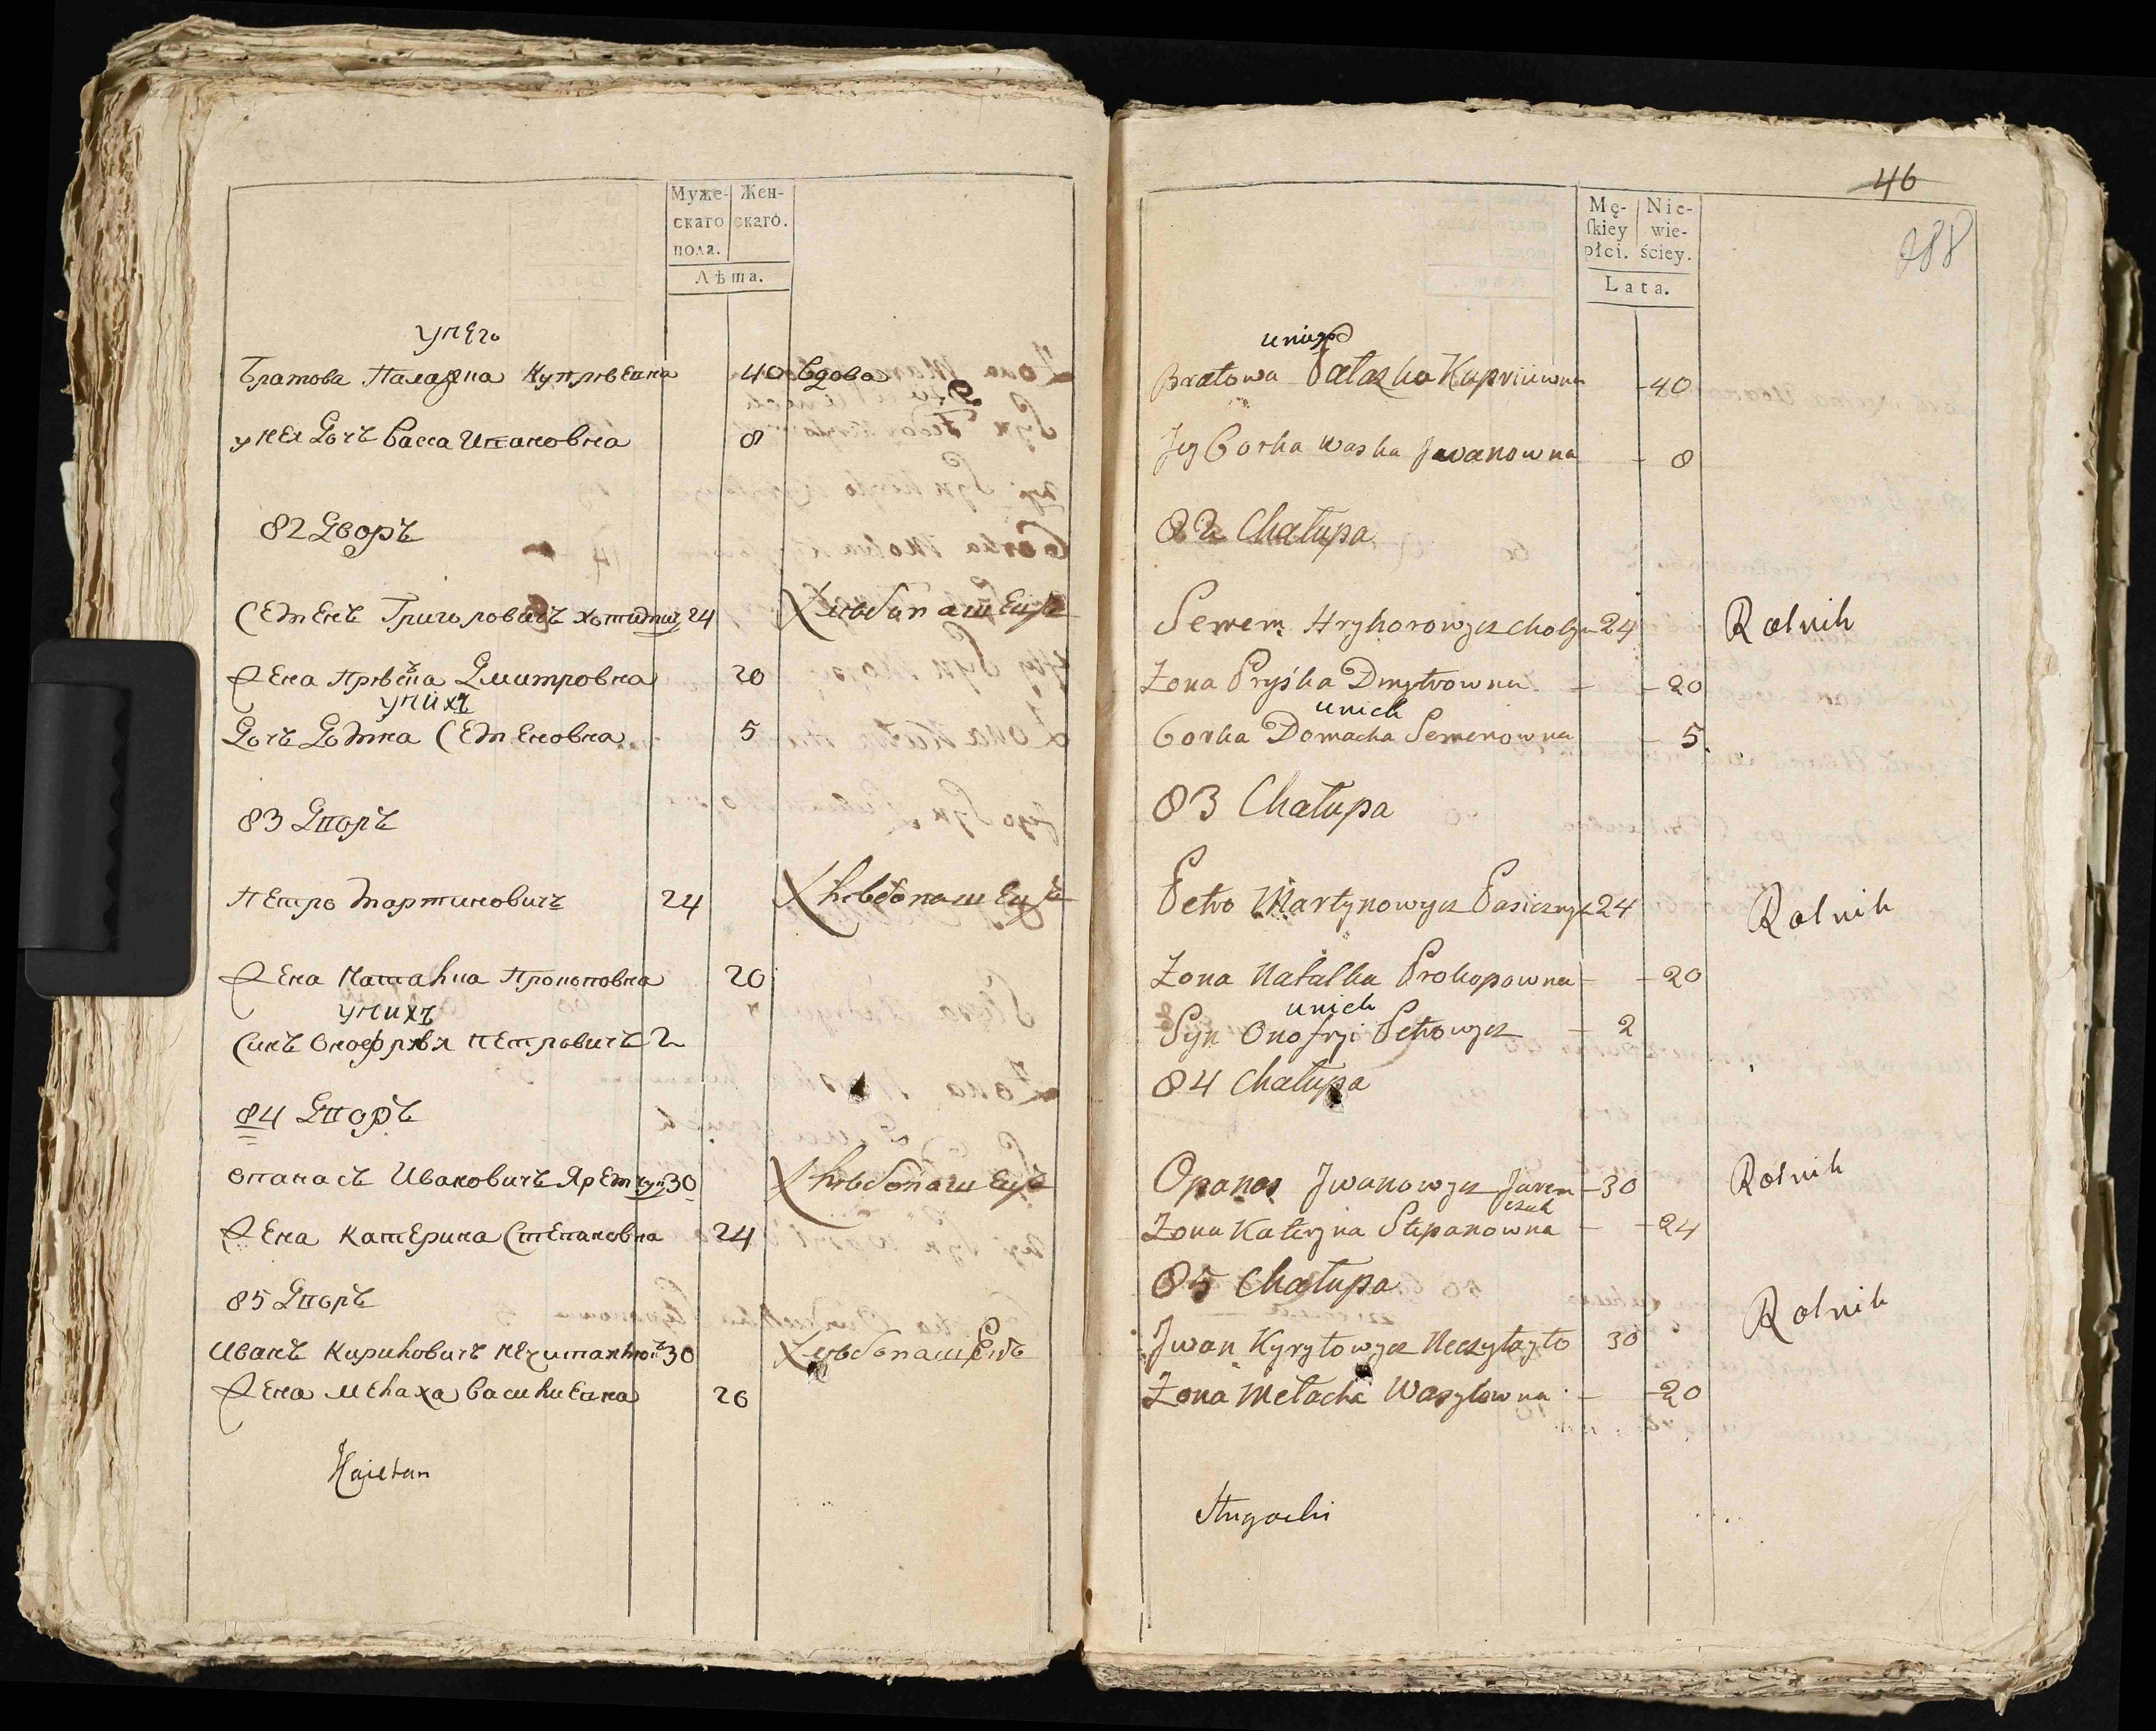 Муже- Жен-
скаго скаго.
пола.
Лѣта.
унего
Братова Палажка Купрѣевна 40 Вдова
унея Дочь Васса Ивановна 8
82 Дворъ
Семенъ Григоровичъ 24 Хлѣбопашецъ
Жена Дмитровна 20
унихъ
Дочь Домна Семеновна 5
83 Дворъ
Петро Мартиновичъ 24 Хлѣбопашецъ
Жена Наталка Прокоповна 20
унихъ
Синъ Онофрѣй Петровичъ 2
84 Дворъ
Опанасъ Ивановичъ Яремчук 30 Хлѣбопашецъ
Жена Катерина Степановна 24
85 Дворъ
Иванъ Кириловичъ 30
Жена Мелаха Василиевна 20
Kaietan
46
288
Mę- Nie-
skiey wie-
płci. ściey.
Lata.
Bratowa Pałazka Kupriiwna - 40
Jey Corka Waska Jwanowna - 8
82 Chałupa
Semen Hryhorowycz 24 Rolnik
Zona Pryśka Dmytrowna - - 20
unich
Corka Domacha Semenowna 5
83 Chałupa
Petro Martynowycz Pasicznyk 24 Rolnik
Zona Natalka Prokopowna - - 20
unich
Syn Onofryi Petrowycz - 2
84 Chałupa
Opanas Jwanowycz Jarem - 30 Rolnik
czuk
Zona Kateryna Stepanowna - - 24
85 Chałupa
Jwan Kyryłowycz Neczytayło 30 Rolnik
Zona Mełacha Wasylowna - - 20